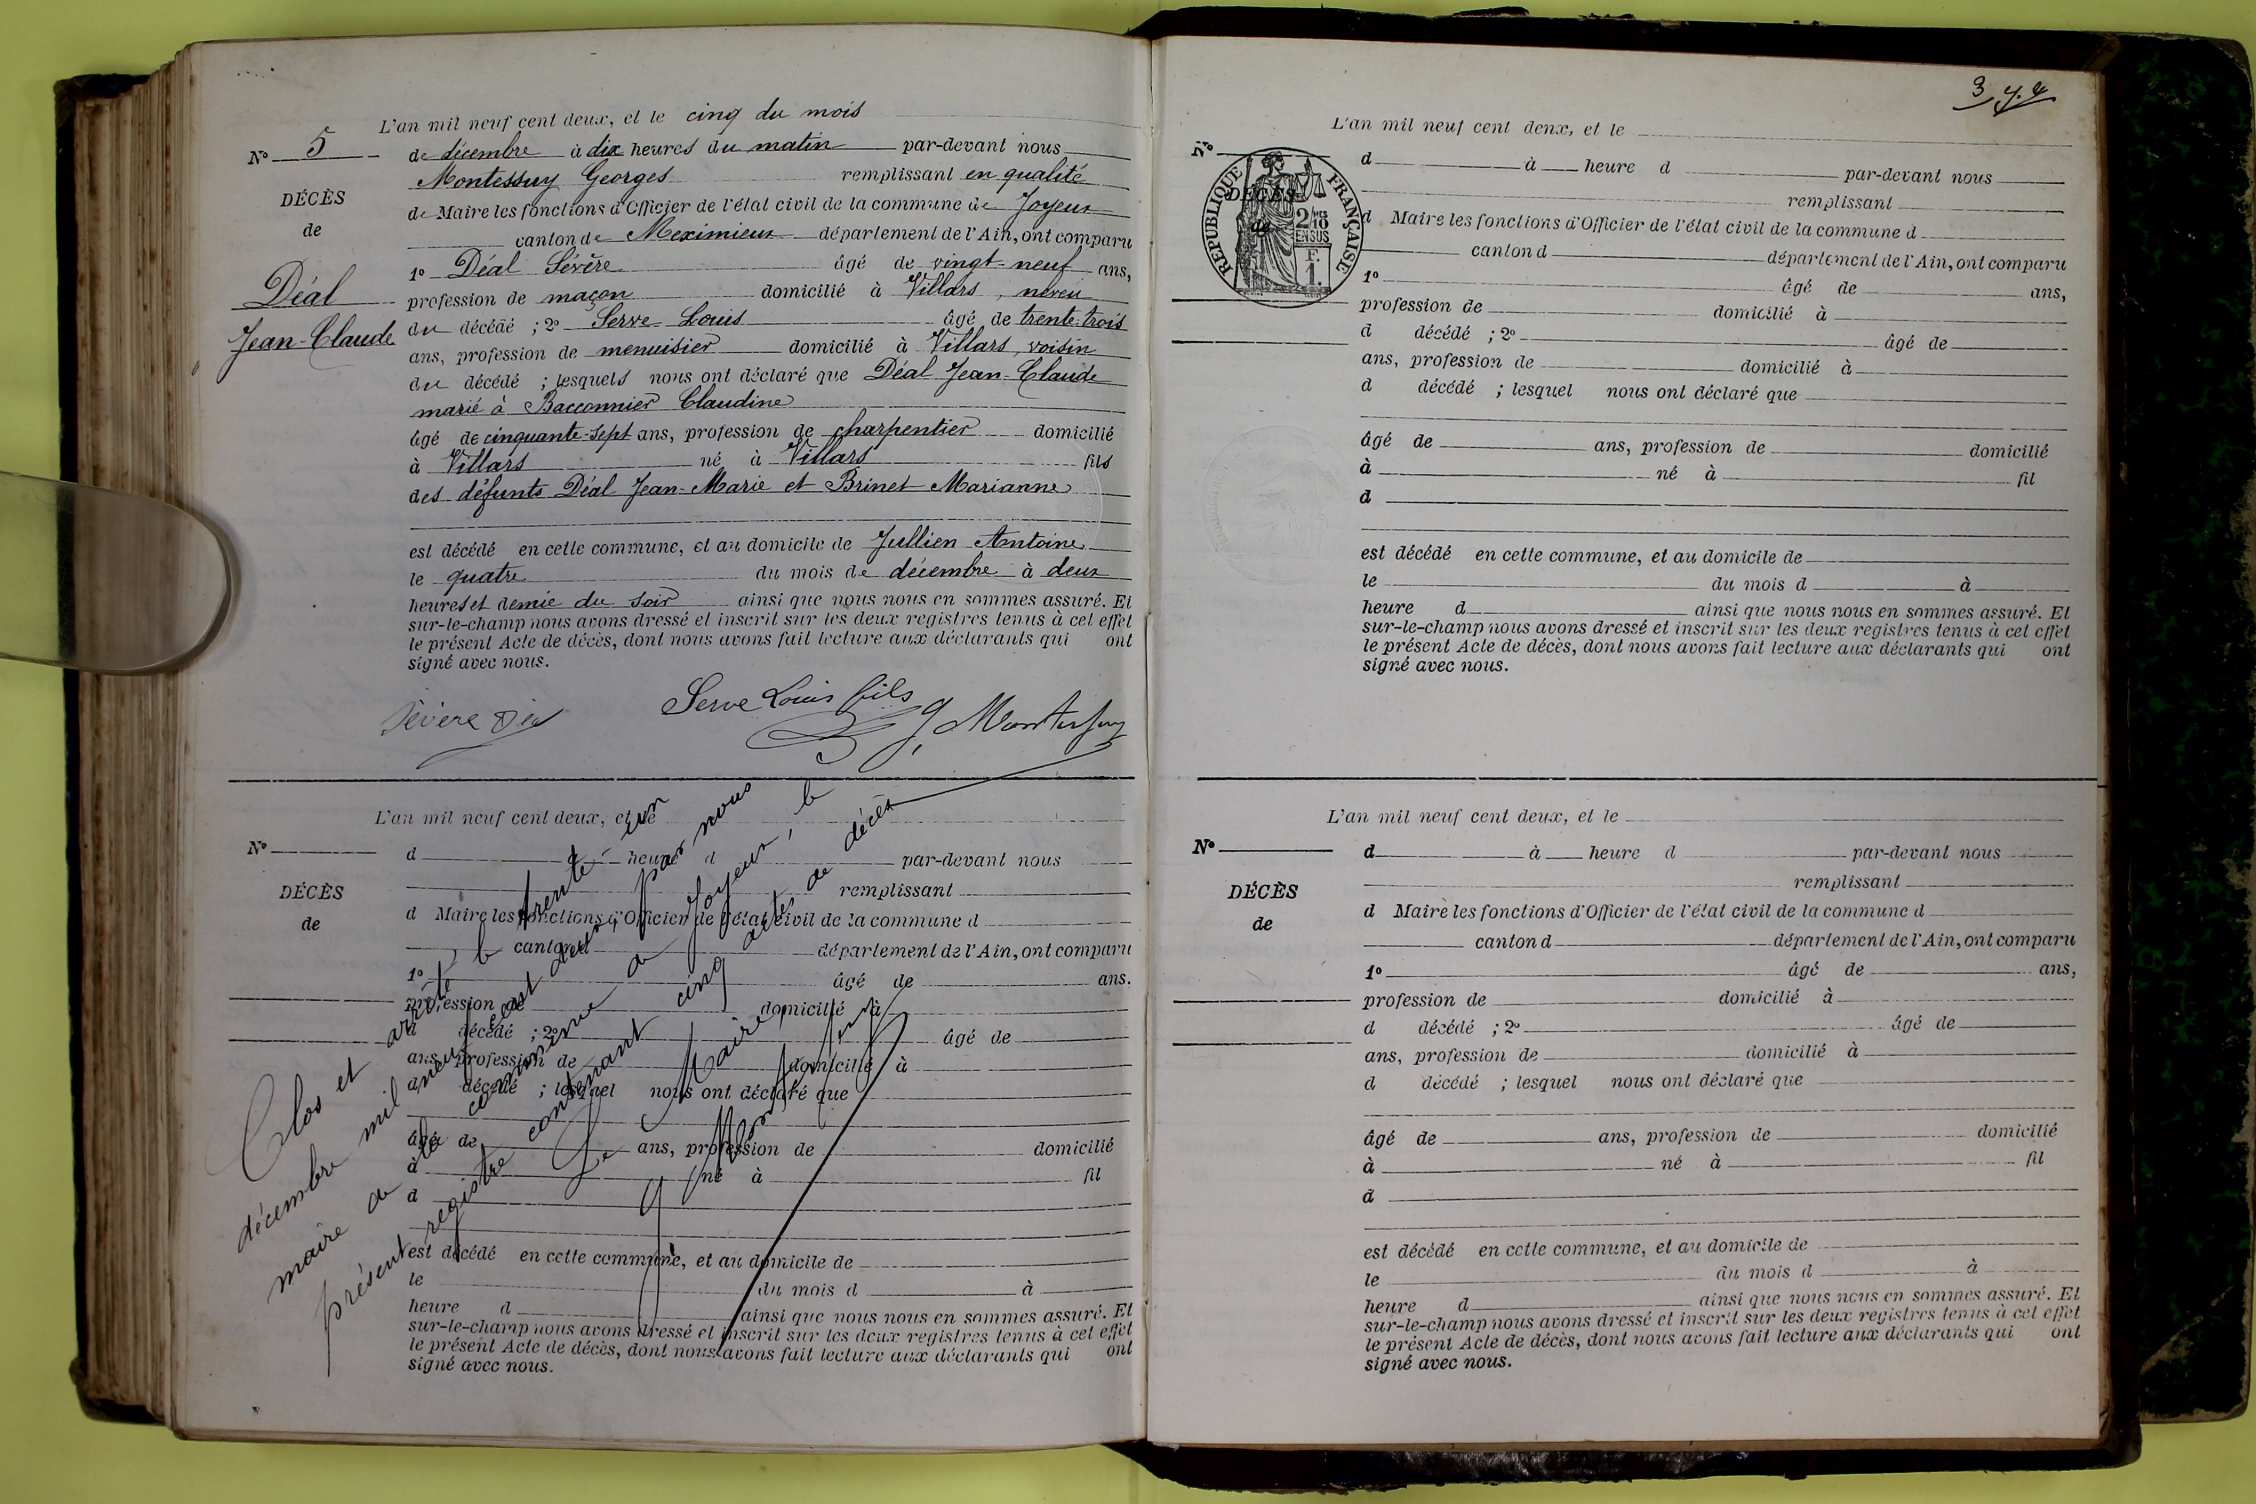 L'an mil neuf cent deux, et le cinq du mois
N° 5
de décembre à dix heures du matin par-devant nous
Montessuy Georges remplissant en qualité
DÉCÈS
de Maire les fonctions d'Officier de l'état civil de la commune de Joyeux
de
canton de Meximieux département de l'Ain, ont comparu
1° Déal Sévère âgé de vingt-neuf ans,
Déal
profession de maçon domicilié à Villars, neveu
Jean-Claude
du décédé ; 2° Serve Louis âgé de trente-trois
ans, profession de menuisier domicilié à Villars, voisin
du décédé ; lesquels nous ont déclaré que Déal Jean-Claude
marié à Bacconnier Claudine
âgé de cinquante-sept ans, profession de charpentier domicilié
à Villars né à Villars fils
des défunts Déal Jean-Marie et Brinet Marianne
est décédé en cette commune, et au domicile de Jullien Antoine
le quatre du mois de décembre à deux
heures et demie du soir ainsi que nous nous en sommes assuré. Et
sur-le-champ nous avons dressé et inscrit sur les deux registres tenus à cet effet
le présent Acte de décès, dont nous avons fait lecture aux déclarants qui ont
signé avec nous.
Sévère Déal
Serve Louis fils
G Montessuy
L'an mil neuf cent deux, et le
N°
d à heure d par-devant nous
remplissant
DÉCÈS
d Maire les fonctions d'Officier de l'état civil de la commune d
de
canton d département de l'Ain, ont comparu
1° âgé de ans.
profession de domicilié à
d décédé ; 2° âgé de
ans, profession de domicilié à
d décédé ; lesquel nous ont déclaré que
âgé de ans, profession de domicilié
à né à fil
d
est décédé en cette commune, et au domicile de
le du mois d à
heure d ainsi que nous nous en sommes assuré. Et
sur-le-champ nous avons dressé et inscrit sur les deux registres tenus à cet effet
le présent Acte de décès, dont nous avons fait lecture aux déclarants qui ont
signé avec nous.
Clos et arrêté le trente-un
décembre mil neuf cent deux, par nous
maire de la commune de Joyeux, le
présent registre contenant cinq actes de décès
Le Maire,
G Montessuy
L'an mil neuf cent deux, et le
N°
d à heure d par-devant nous
remplissant
DÉCÈS
d Maire les fonctions d'Officier de l'état civil de la commune d
de
RÉPUBLIQUE FRANÇAISE
2/10 EN SUS
F.
1.
canton d département de l'Ain, ont comparu
1° âgé de ans,
profession de domicilié à
d décédé ; 2° âgé de
ans, profession de domicilié à
d décédé ; lesquel nous ont déclaré que
âgé de ans, profession de domicilié
à né à fil
d
est décédé en cette commune, et au domicile de
le du mois d à
heure d ainsi que nous nous en sommes assuré. Et
sur-le-champ nous avons dressé et inscrit sur les deux registres tenus à cet effet
le présent Acte de décès, dont nous avons fait lecture aux déclarants qui ont
signé avec nous.
L'an mil neuf cent deux, et le
N°
d à heure d par-devant nous
remplissant
DÉCÈS
d Maire les fonctions d'Officier de l'état civil de la commune d
de
canton d département de l'Ain, ont comparu
1° âgé de ans,
profession de domicilié à
d décédé ; 2° âgé de
ans, profession de domicilié à
d décédé ; lesquel nous ont déclaré que
âgé de ans, profession de domicilié
à né à fil
d
est décédé en cette commune, et au domicile de
le du mois d à
heure d ainsi que nous nous en sommes assuré. Et
sur-le-champ nous avons dressé et inscrit sur les deux registres tenus à cet effet
le présent Acte de décès, dont nous avons fait lecture aux déclarants qui ont
signé avec nous.